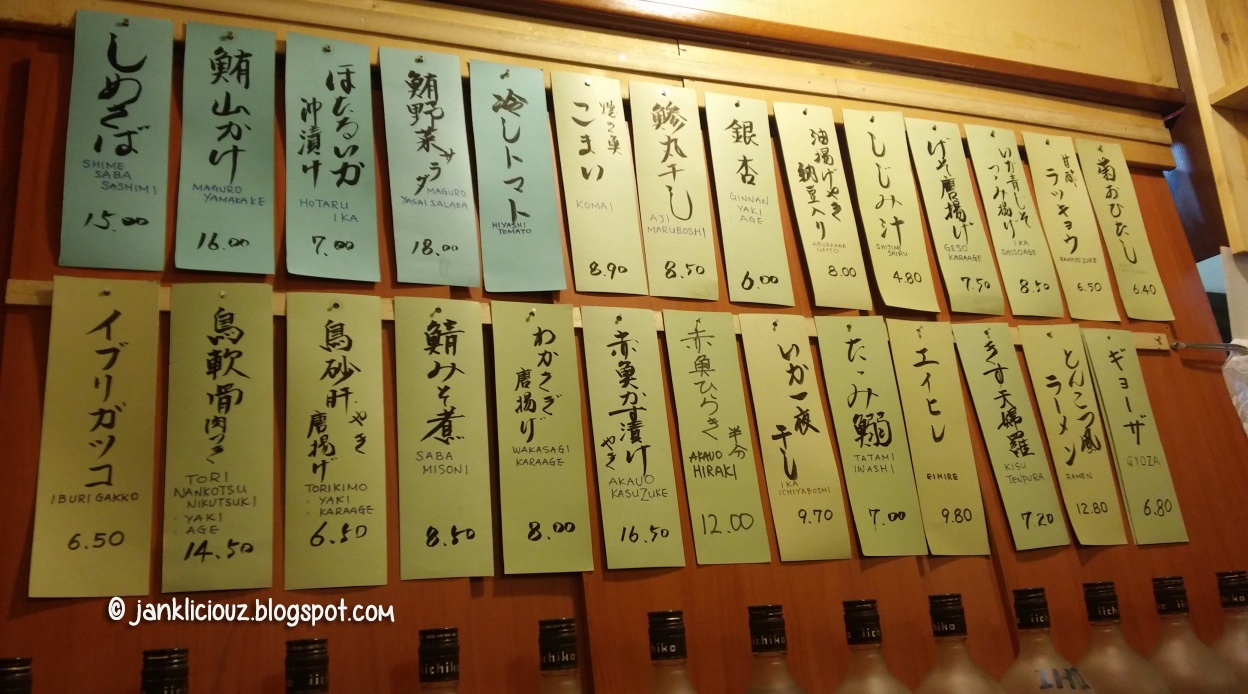 しめさば
SHIME
SABA
SASHIMI
15.00
鮪山かけ
MAGURO
YAMAKAKE
16.00
ほたるいか
沖漬け
HOTARU
IKA
7.00
鮪野菜サラダ
MAGURO
YASAI SALADA
18.00
冷しトマト
HIYASHI
TOMATO
こまい
KOMAI
8.90
鯵丸干し
AJI
MARUBOSHI
8.50
銀杏
GINNAN
YAKI
AGE
6.00
油揚げやき
納豆入り
ABURAAGE
NATTO
8.00
しじみ汁
SHIJIMI
SHIRU
4.80
げそ唐揚げ
GESO
KARAAGE
7.50
いか青しそ
つつみ揚げ
IKA
SHISOAGE
8.50
甘酢
ラッキョウ
RAKKYO ZUKE
6.50
菊おひたし
6.40
イブリガッコ
IBURI GAKKO
6.50
鳥軟骨肉つき
TORI
NANKOTSU
NIKUTSUKI
・YAKI
・AGE
14.50
鳥砂肝やき
唐揚げ
TORIKIMO
・YAKI
・KARAAGE
6.50
鯖みそ煮
SABA
MISONI
8.50
わかさぎ
唐揚げ
WAKASAGI
KARAAGE
8.00
赤魚かす漬け
やき
AKAUO
KASUZUKE
16.50
赤魚ひらき
半分
AKAUO
HIRAKI
12.00
いか一夜
干し
IKA
ICHIYABOSHI
9.70
たゝみ鰯
TATAMI
IWASHI
7.00
エイヒレ
EIHIRE
9.80
きす天婦羅
KISU
TENPURA
7.20
とんこつ風
ラーメン
RAMEN
12.80
ギョーザ
GYOZA
6.80
© jankliciouz.blogspot.com
iichiko
chiko
hiko
chiko
iich
iichi
iic
iichi
ii